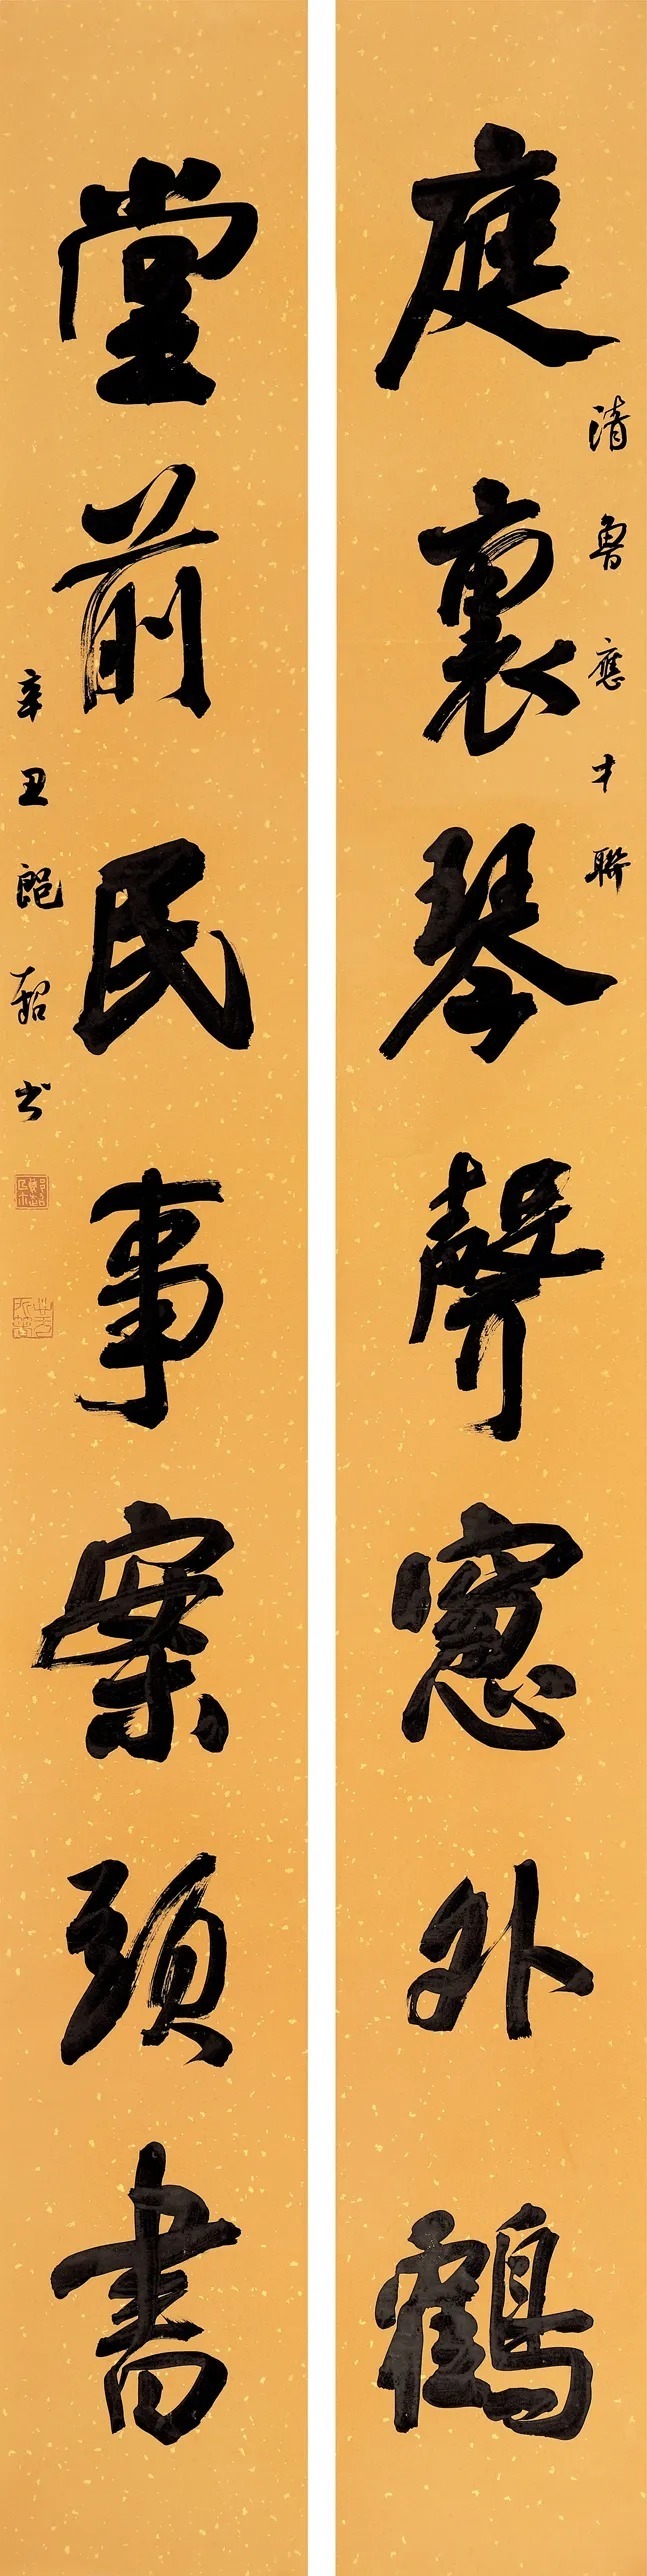 庭裏琴聲窓外鶴
清魯應才聯
堂前民事案頭書
辛丑 韶书